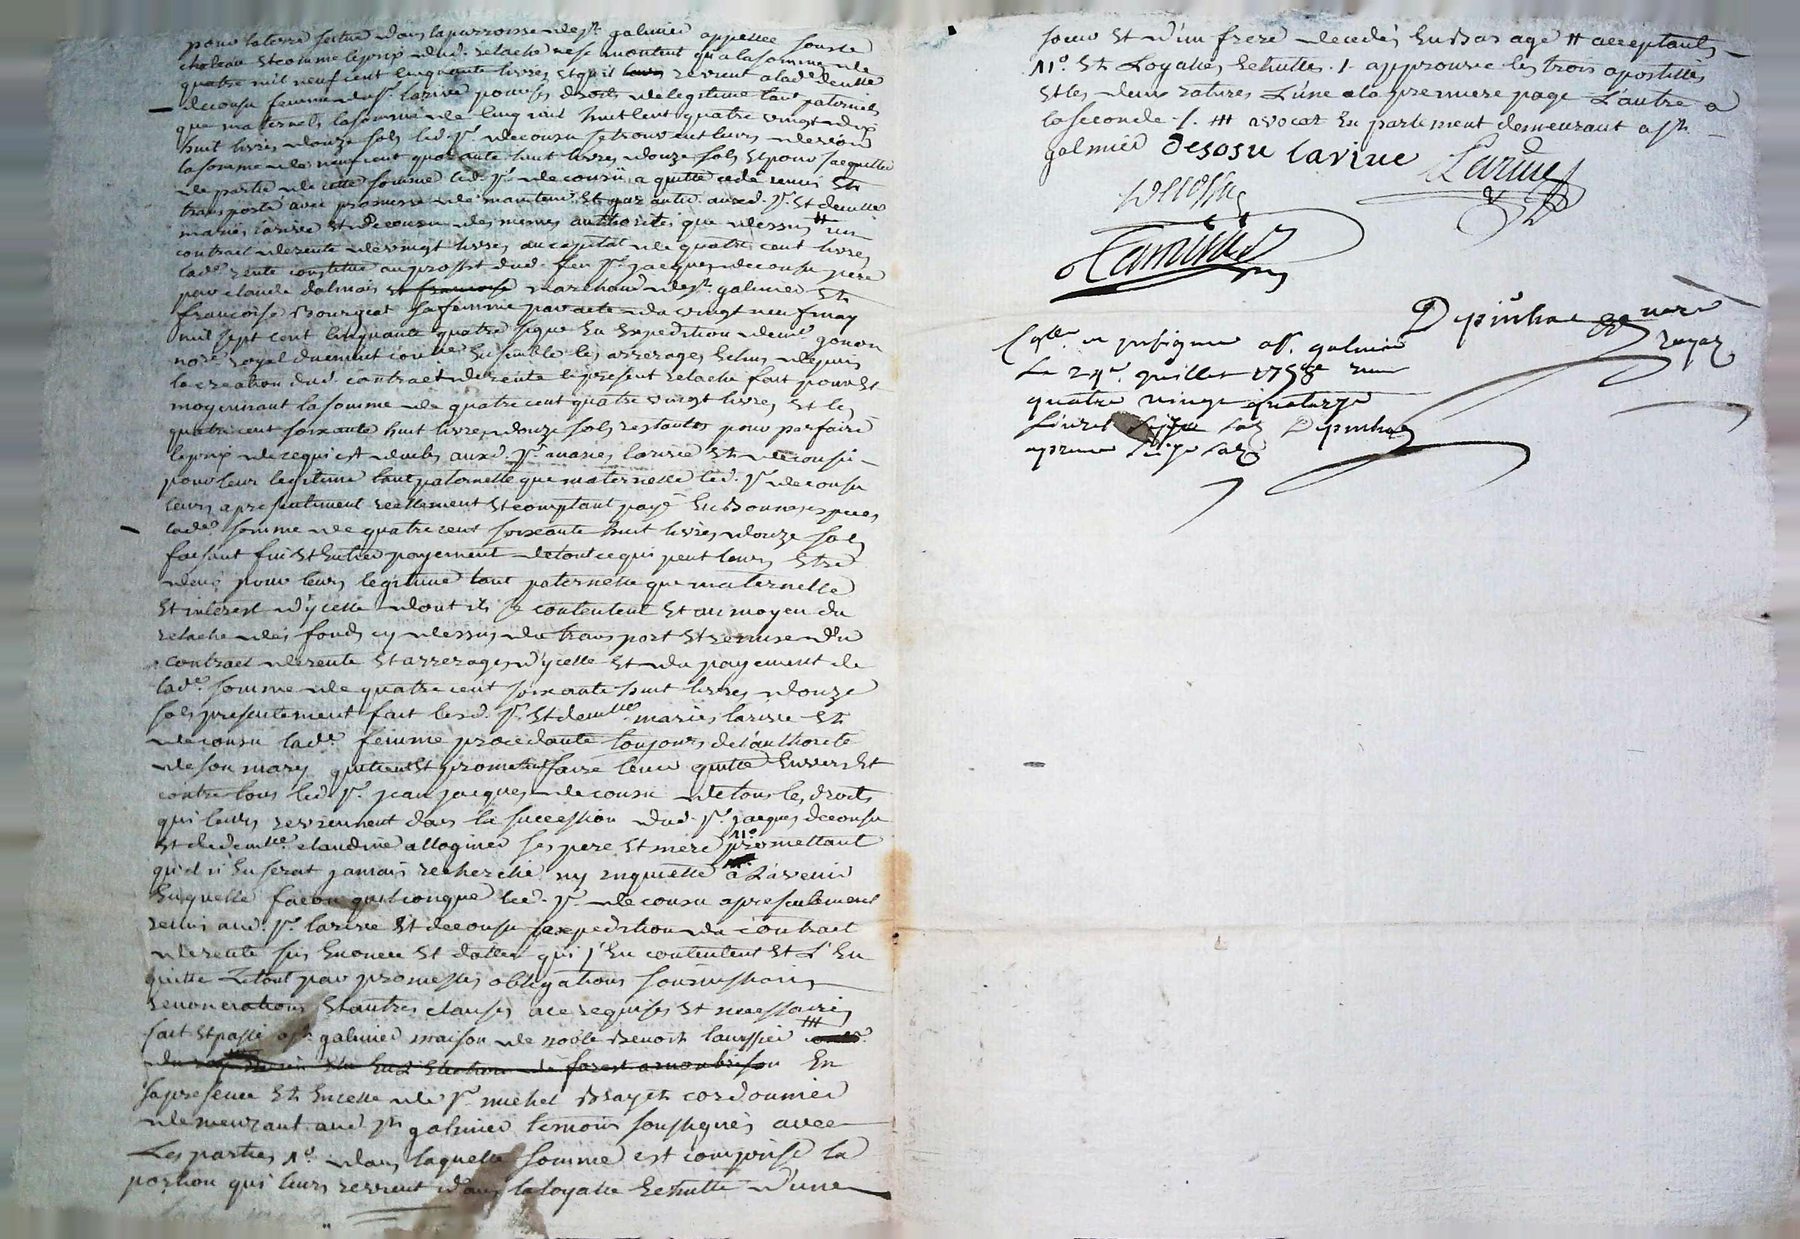 pour la terre située dans la parroisse de st galmier appellée sous le
chateau et comme le prix dud. relache ne se montent qu'a la somme de
quatre mil neuf cent cinquante livres et quil revient a lade deulle
decousu femme du sr. larive pour ses droits de legitime tant paternels
que maternels la somme de cinq mil huit cent quatre vingt dix
huit livres douze sols led. sr. decousu se trouvent leurs devoir
la somme de neuf cent quarante huit livres douze sols et pour
de partie de cette somme led. sr. decousu a quitté cedé remis et
transporté avec promesse de maintenir et garantir auxd. sr. et deulle
mariés larive et decousu des memes authorités que dessus # un
contrait de rente de vingt livres au capital de quatre cent livres
lade. rente constitué au proffit dud. feu sr. jacques decousu pere
par claude dalmais et francoise marchand de st. galmier et
francoise bourgeat sa femme par acte du vingt neuf may
mil sept cent cinquante quatre signé en expedition de me. gonon
nore. royal duement ensemble les arrerages echus depuis
la creation dud. contract de rente le present relache fait pour et
moyennant la somme de quatre cent quatre vingt livres et les
quatre cent soixante huit livres douze sols restantes pour parfaire
le prix de ce qui est du auxd. sr. mariés larive et decousu
pour leur legitime tant paternelle que maternelle led. sr. decousu
leurs a presentement reellement et comptant payé en bonnes especes
lade. somme de quatre cent soixante huit livres douze sols
faisant fin et entier payement de tout ce qui peut leurs etre
deu pour leurs legitime tant paternelle que maternelle
et interest d'ycelle dont ils se contentent et au moyen du
relache des fonds cy dessus du transport et remise du
contract de rente et arrerages d'ycelle et du payement de
lade. somme de quatre cent soixante huit livres douze
sols presentement fait lesd. sr. et deulle. mariés larive et
decousu lade. femme procedante toujours de l'authorité
de son mary quittent et promettent faire tenir quitte envers et
contre tous led. sr. jean jacques decousu de tous les droits
qui leurs reviennent dans la succession dud. sr. jacques decousu
et de deulle. claudine alloginet ses pere et mere 11o promettant
qu'il n'en serat jamais recherché ny inquietté a l'avenir
en quelle facon quelconque led. sr. decousu a presentement
remis aud. sr. larive et decousu l'expedition du contract
de rente sus enoncé et datté qui s'en contentent et l'en
quitte le tout par promesses obligations soumissions
renonciations et autres clauses a ce requises et necessaires
fait et passé a st. galmier maison de noble benoit laussier ###
en l'election de forest a montbrison En
sa presence et en celle de sr. michel brayet cordonnier
demeurant aud. st. galmier temoins soussignés avec
Les parties 1o. dans laquelle somme est comprise la
portion qui leurs revient dans la loyalle echutte d'une
soeur et d'un frere decedés en bas age # acceptants
11o. et Loyalles Echuttes. /. approuvé les trois apostilles
et les deux ratures L'une a la premiere page L'autre a
la seconde /. ### avocat en parlement demeurant a st.
galmier desosu larive Larive
decosu
Depinhac nore
royal
Collé. et insinué a st. galmier
Le 24e. juillet 1758 reçu
quatre vingt quatorze
Livres sols Depinhac